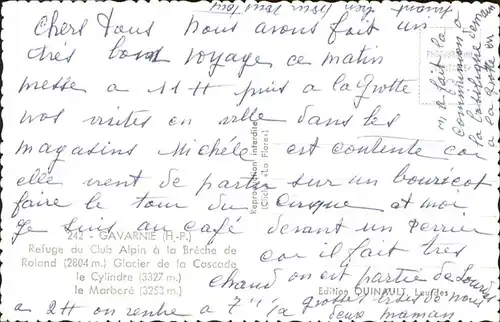 chers Tous nous avons fait un
très bon voyage ce matin
messe a 11 H puis a la grotte
nos visites en ville dans les
magasins Michéle est contente car
elle vient de partir sur un bouricot
faire le tour du cirque et moi
je suis au café devant un Perrier
car il fait très
chaud on est partie de Lourdes
a 2H on rentre a 7H
grosses bises de nous
deux maman
on a fait la
communion a
la basilique demain
a la grotte
242 - GAVARNIE (H.-P.)
Refuge du Club Alpin à la Brèche de
Roland (2804 m.) Glacier de la Cascade
le Cylindre (3327 m.)
le Marboré (3253 m.)
Reproduction interdite
(Clichés «La Flore»)
Edition QUINAULT